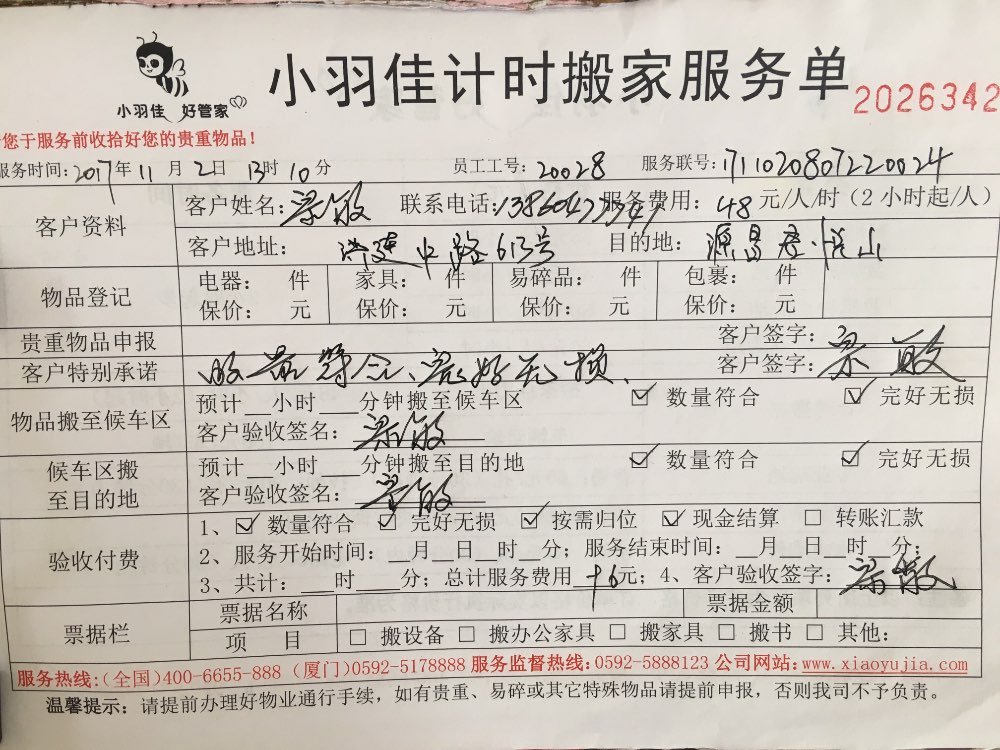 小羽佳 好管家
小羽佳计时搬家服务单
2026342
您于服务前收拾好您的贵重物品！
服务时间：2017年11月2日13时10分 员工工号：20028 服务联号：
客户资料
客户姓名：梁敏 联系电话： 服务费用：48元/人/时（2小时起/人）
客户地址： 中路613号 目的地：源昌君悦山
物品登记
电器： 件 家具： 件 易碎品： 件 包裹： 件
保价： 元 保价： 元 保价： 元 保价： 元
贵重物品申报 客户签字：
客户特别承诺 完好无损 客户签字：梁敏
物品搬至候车区
预计__小时___分钟搬至候车区 ☑ 数量符合 ☑ 完好无损
客户验收签名：梁敏
候车区搬
至目的地
预计__小时___分钟搬至目的地 ☑ 数量符合 ☑ 完好无损
客户验收签名：梁敏
验收付费
1、☑ 数量符合 ☑ 完好无损 ☑ 按需归位 ☑ 现金结算 □ 转账汇款
2、服务开始时间：__月__日__时__分；服务结束时间：__月__日__时__分；
3、共计：___时___分；总计服务费用 元；4、客户验收签字：梁敏
票据栏
票据名称 票据金额
项 目 □ 搬设备 □ 搬办公家具 □ 搬家具 □ 搬书 □ 其他：
服务热线：（全国）400-6655-888（厦门）0592-5178888 服务监督热线：0592-5888123 公司网站：www.xiaoyujia.com
温馨提示：请提前办理好物业通行手续，如有贵重、易碎或其它特殊物品请提前申报，否则我司不予负责。